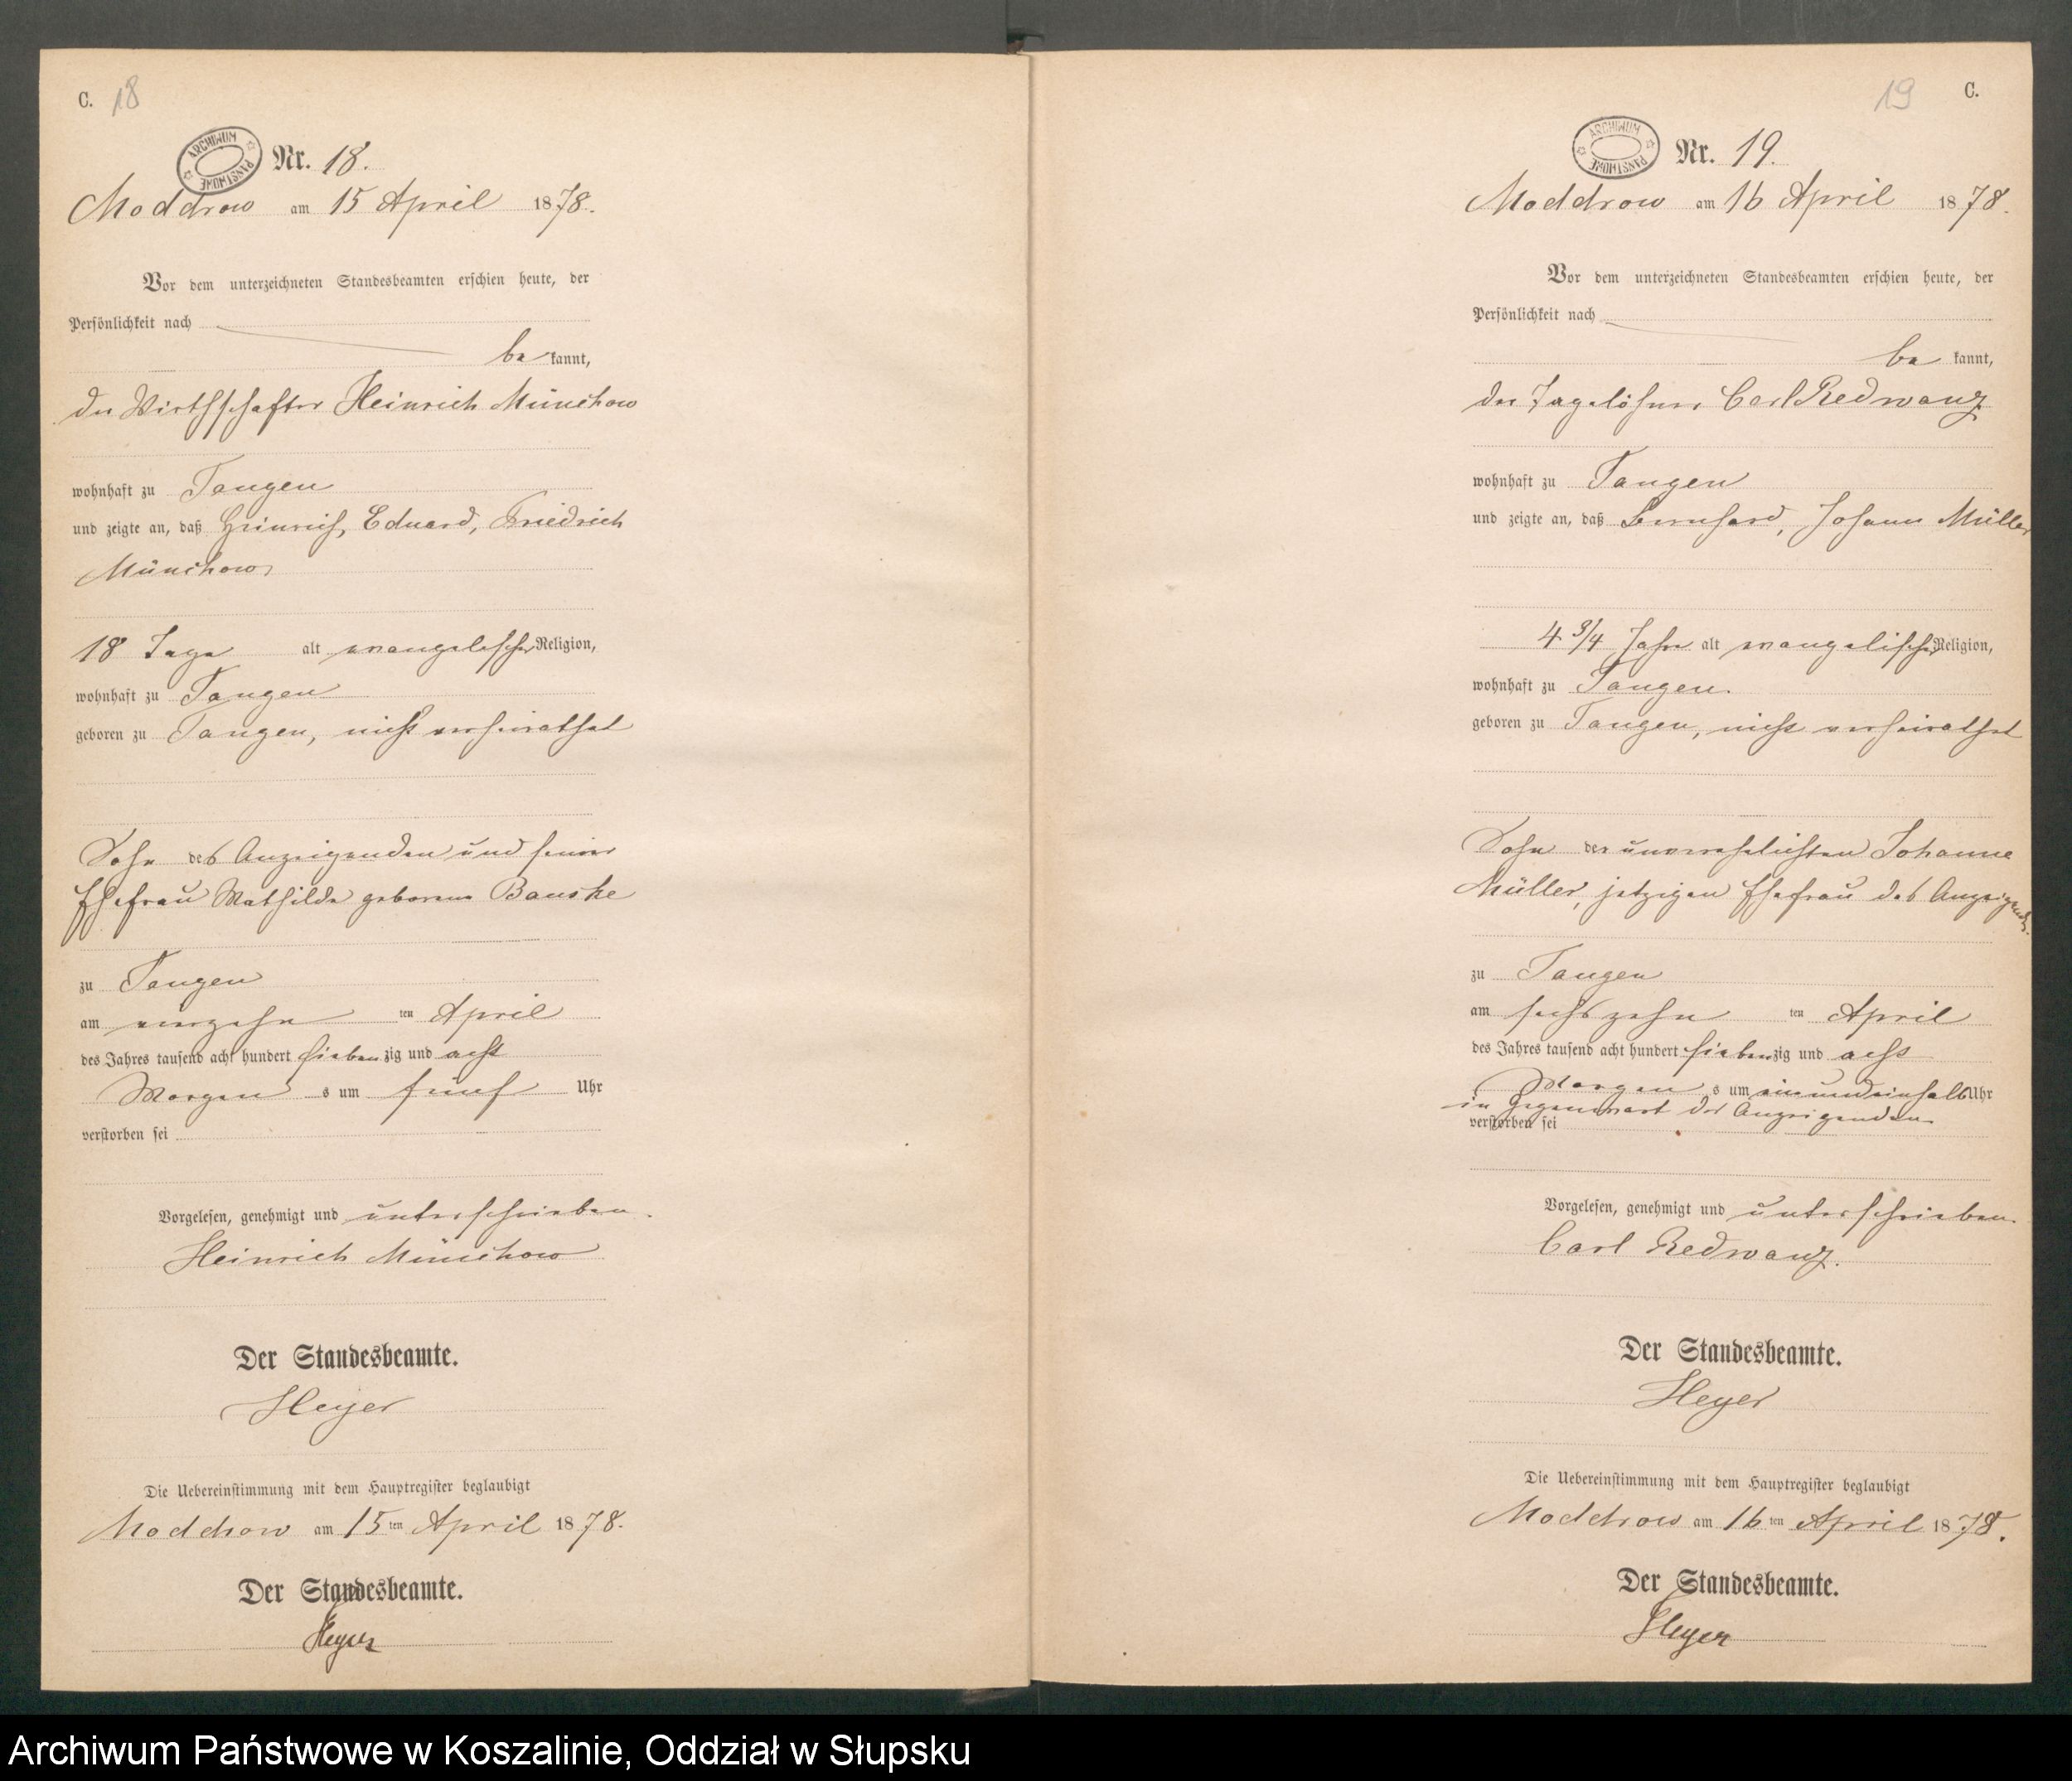 C. 18
ARCHIWUM PAŃSTWOWE
Nr. 18.
Moddrow am 15 April 1878.
Vor dem unterzeichneten Standesbeamten erschien heute, der
Persönlichkeit nach
be kannt,
der Wirthschafter Heinrich Münchow
wohnhaft zu Tangen
und zeigte an, daß Heinrich, Eduard, Friedrich
Münchow,
18 Tage alt evangelischer Religion,
wohnhaft zu Tangen
geboren zu Tangen, nicht verheirathet
Sohn des Anzeigenden und seiner
Ehefrau Mathilde geborene Bauske
zu Tangen
am vierzehn ten April
des Jahres tausend acht hundert siebenzig und acht
Morgen s um fünf Uhr
verstorben sei
Vorgelesen, genehmigt und unterschrieben.
Heinrich Münchow
Der Standesbeamte.
Heyer
Die Uebereinstimmung mit dem Hauptregister beglaubigt
Moddrow am 15ten April 1878.
Der Standesbeamte.
Heyer
19 C.
ARCHIWUM PAŃSTWOWE
Nr. 19.
Moddrow am 16 April 1878.
Vor dem unterzeichneten Standesbeamten erschien heute, der
Persönlichkeit nach
be kannt,
der Tagelöhner Carl Redwanz
wohnhaft zu Tangen
und zeigte an, daß Bernhard, Johann Müller
4 3/4 Jahre alt evangelischer Religion,
wohnhaft zu Tangen.
geboren zu Tangen, nicht verheirathet
Sohn der unverehelichten Johanne
Müller, jetzigen Ehefrau des Anzeigenden.
zu Tangen
am sechszehn ten April
des Jahres tausend acht hundert siebenzig und acht
Morgen s um einundeinhalb Uhr
in Gegenwart des Anzeigenden
verstorben sei
Vorgelesen, genehmigt und unterschrieben.
Carl Redwanz.
Der Standesbeamte.
Heyer
Die Uebereinstimmung mit dem Hauptregister beglaubigt
Moddrow am 16ten April 1878.
Der Standesbeamte.
Heyer
Archiwum Państwowe w Koszalinie, Oddział w Słupsku